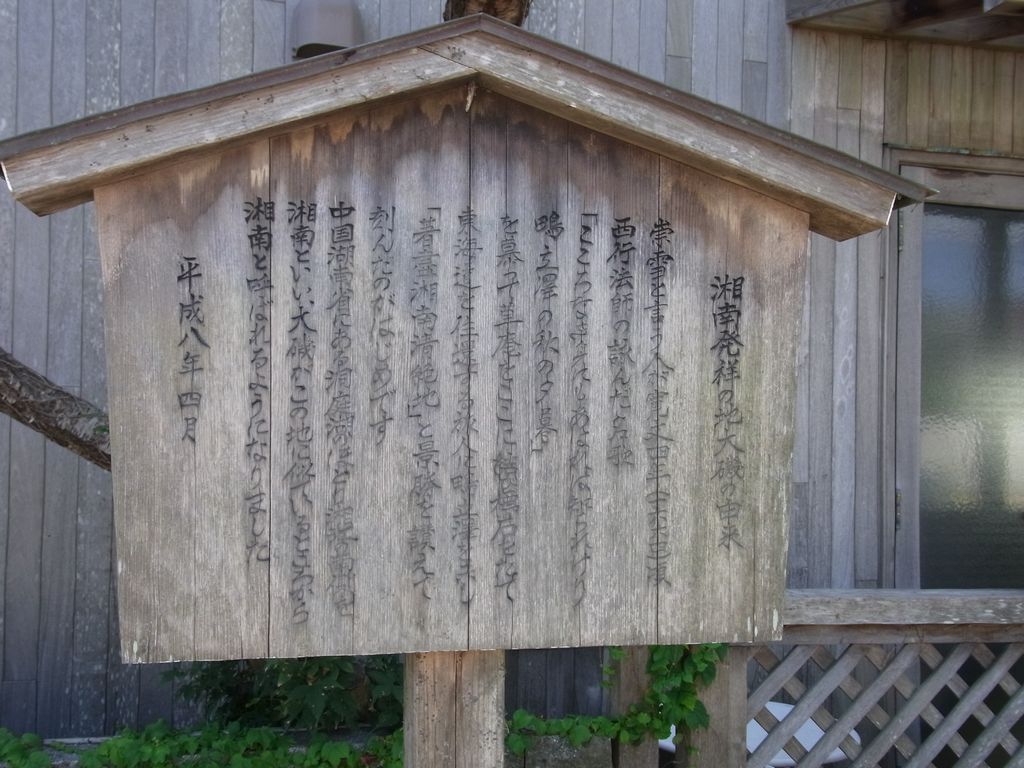 湘南発祥の地大磯の由来
崇雪と言う人が寛文四年(一六六四年)頃
西行法師の詠んだと歌
「こころなき身にもあはれは知られけり
鴫立澤の秋の夕暮」
を慕って草庵をここに結び標石を建て
東海道を往還する旅人に
「著盡湘南清絶地」と景勝を讃えて
刻んだのがはじめです
中国湖南省にある洞庭湖のほとり湘江の南側を
湘南といい大磯がこの地に似ているところから
湘南と呼ばれるようになりました
平成八年四月